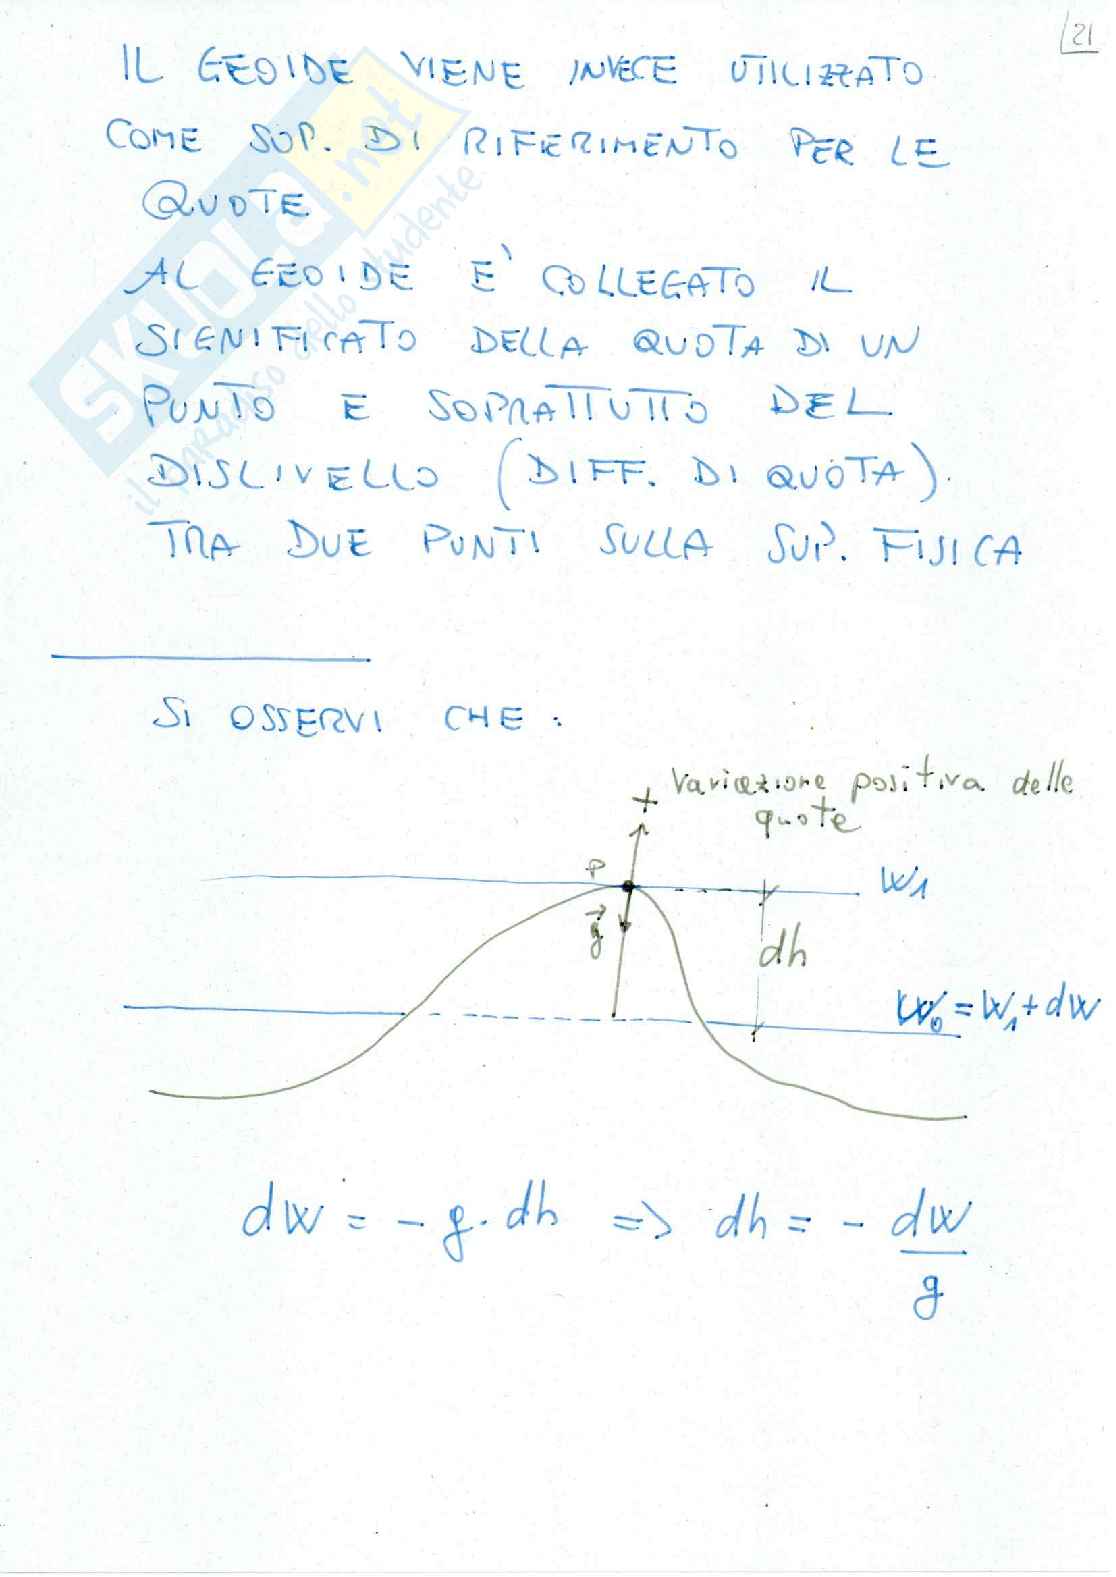 21
IL GEOIDE VIENE INVECE UTILIZZATO
COME SUP. DI RIFERIMENTO PER LE
QUOTE.
AL GEOIDE E' COLLEGATO IL
SIGNIFICATO DELLA QUOTA DI UN
PUNTO E SOPRATTUTTO DEL
DISLIVELLO (DIFF. DI QUOTA).
TRA DUE PUNTI SULLA SUP. FISICA
SI OSSERVI CHE :
+ Variazione positiva delle
quote
P
W1
g
dh
W0 = W1 + dW
dW = - g · dh => dh = - dW/g
SKUOLA.net
il paradiso dello studente